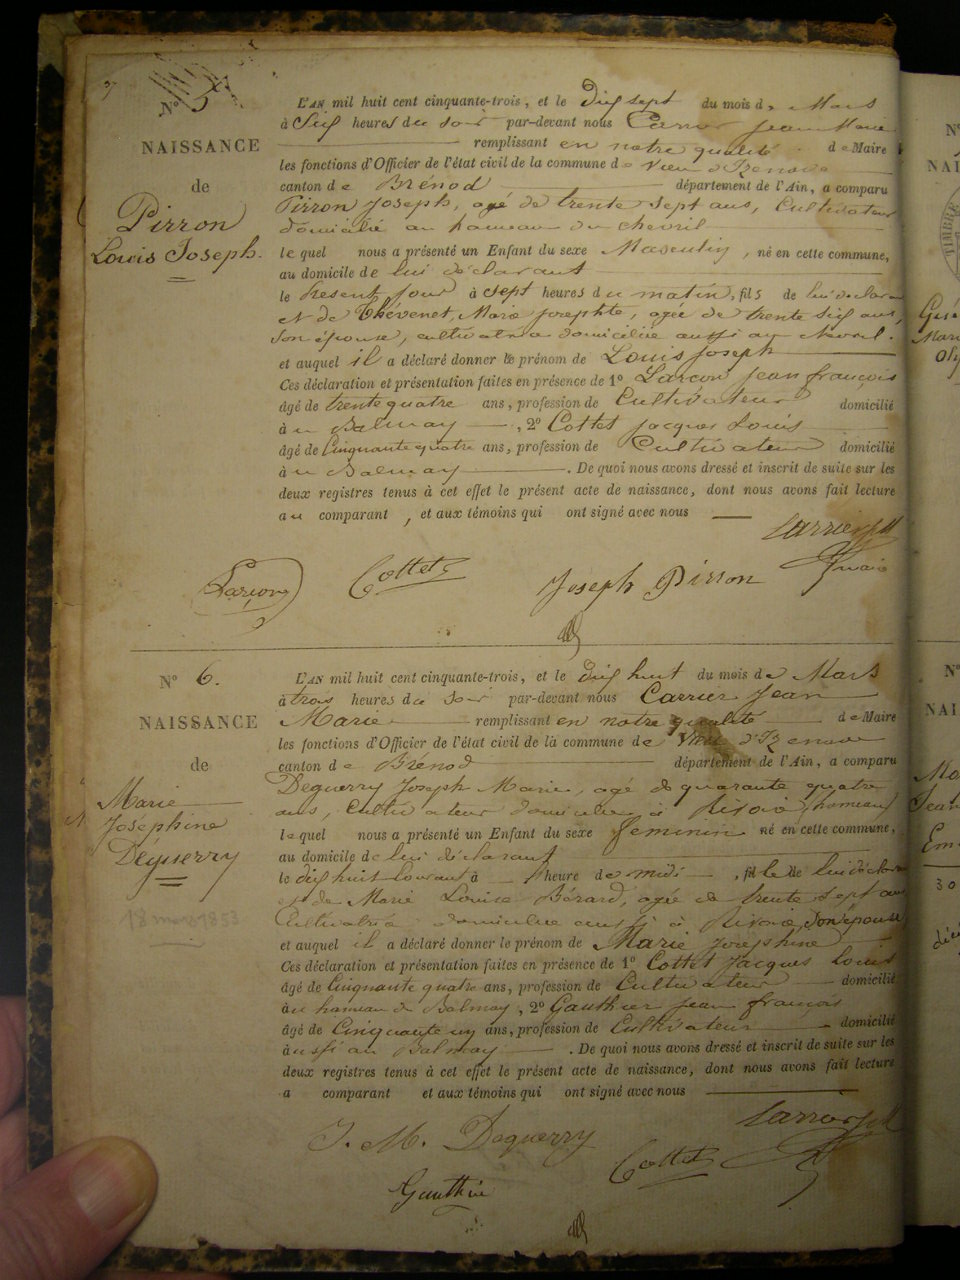 N° 5
NAISSANCE
de
Pirron
Louis Joseph.
L'AN mil huit cent cinquante-trois, et le Dix sept du mois de Mars
à Six heures du soir par-devant nous Carrier Jean Marie
remplissant en notre qualité de Maire
les fonctions d'Officier de l'état civil de la commune de Vieu d'Izenave
canton de Brénod département de l'Ain, a comparu
Pirron Joseph, agé de trente sept ans, Cultivateur
domicilié au hameau du chevril
le quel nous a présenté un Enfant du sexe Masculin, né en cette commune,
au domicile de lui déclarant
le Présent jour à sept heures du matin, fils de lui déclarant
et de Thévenet, Marie josephte, agée de trente six ans,
Son épouse, cultivatrice domiciliée aussi au chevril.
et auquel il a déclaré donner le prénom de Louis joseph
Ces déclaration et présentation faites en présence de 1° Larçon jean françois
âgé de trente quatre ans, profession de Cultivateur domicilié
à u Balmay, 2° Cottet jacques Louis
âgé de Cinquante quatre ans, profession de Cultivateur domicilié
à u Balmay. De quoi nous avons dressé et inscrit de suite sur les
deux registres tenus à cet effet le présent acte de naissance, dont nous avons fait lecture
au comparant, et aux témoins qui ont signé avec nous
Carrier JM
Larçon Cottet Joseph Pirron
N° 6.
NAISSANCE
de
Marie
Joséphine
Deguerry
18 mars 1853
L'AN mil huit cent cinquante-trois, et le Dix huit du mois de Mars
à trois heures du soir par-devant nous Carrier Jean
Marie remplissant en notre qualité de Maire
les fonctions d'Officier de l'état civil de la commune de Vieu d'Izenave
canton de Brénod département de l'Ain, a comparu
Deguerry Joseph Marie, agé de quarante quatre
ans, Cultivateur domicilié à (hameau)
le quel nous a présenté un Enfant du sexe feminin né en cette commune,
au domicile de lui déclarant
le dix huit courant à 1 heure de midi, fille de lui déclarant
et de Marie Louise Bérard, agée de trente sept ans
Cultivatrice domiciliée aussi à Son épouse
et auquel il a déclaré donner le prénom de Marie josephine
Ces déclaration et présentation faites en présence de 1° Cottet Jacques Louis
âgé de Cinquante quatre ans, profession de Cultivateur domicilié
àu hameau de Balmay, 2° Gauthier jean françois
âgé de Cinquante un ans, profession de Cultivateur domicilié
àussi au Balmay. De quoi nous avons dressé et inscrit de suite sur les
deux registres tenus à cet effet le présent acte de naissance, dont nous avons fait lecture
a comparant et aux témoins qui ont signé avec nous
J. M. Deguerry Cottet Carrier JM
Gauthier